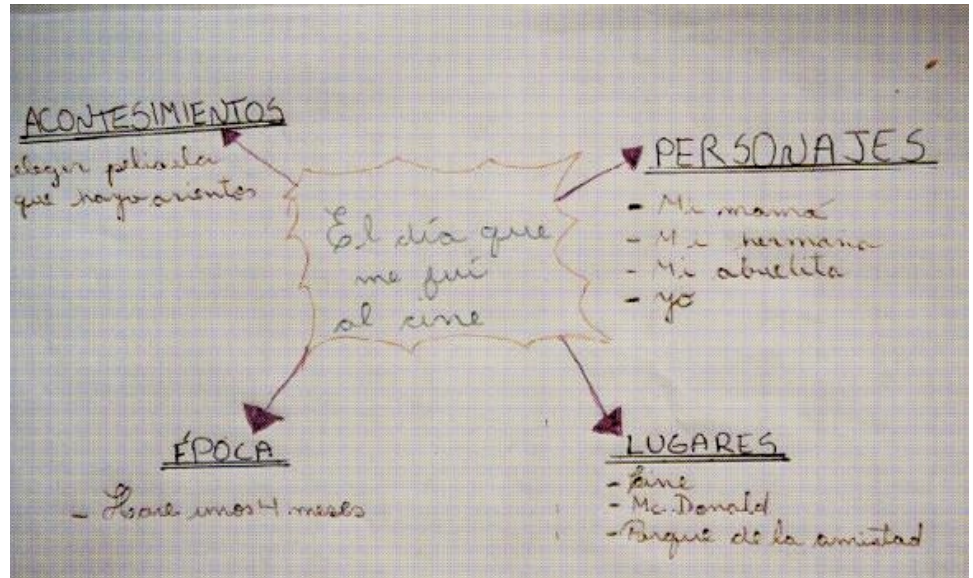 ACONTESIMIENTOS
elegir pelicula
que haya asientos
El día que
me fuí
al cine
PERSONAJES
- Mi mamá
- Mi hermana
- Mi abuelita
- yo
ÉPOCA
- Hace unos 4 meses
LUGARES
- Cine
- Mc. Donald
- Parque de la amistad